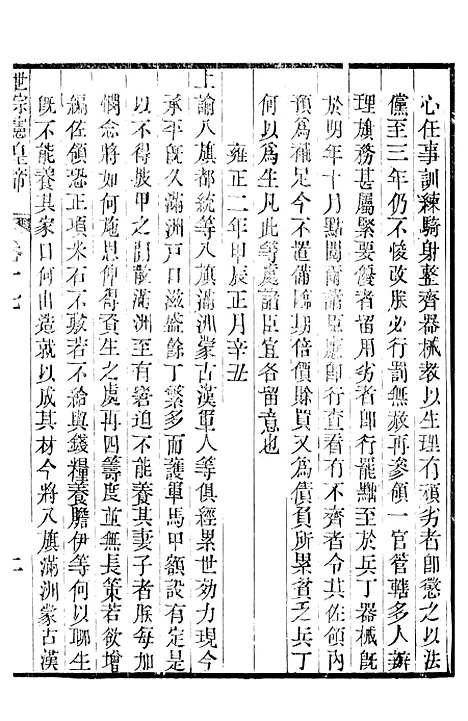 心任事訓練騎射整齊器械敎以生理有頑劣者卽懲之以法
儻至三年仍不悛改朕必行罰無赦再參領一官管轄多人辦
理旗務甚屬緊要優者留用劣者卽行罷黜至於兵丁器械旣
於明年十月點閱爾諸臣應卽行查看有不齊者令其佐領內
預爲補足今不置備臨期倍價賒買又爲債負所累貧乏兵丁
何以爲生凡此等處諸臣宜各留意也
雍正二年甲辰正月辛丑
上諭八旗都統等八旗滿洲蒙古漢軍人等俱經累世効力現今
承平旣久滿洲戶口滋盛餘丁繁多而護軍馬甲額設有定是
以不得披甲之閒散滿洲至有窘迫不能養其妻子者朕每加
憫念將如何施恩俾得資生之處再四籌度並無長策若欲增
編佐領恐正項米石不敷若不給與錢糧養贍伊等何以聊生
旣不能養其家口何由造就以成其材今將八旗滿洲蒙古漢
世宗憲皇帝 卷十七 二